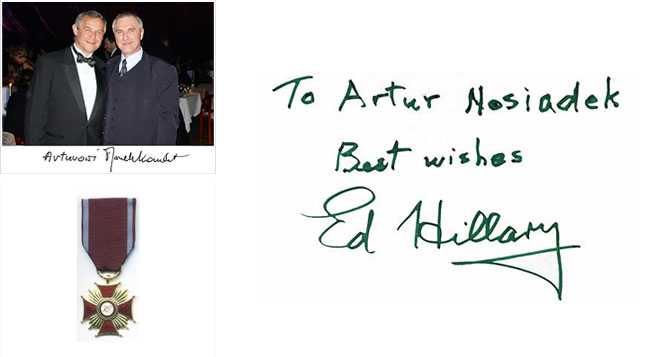 Arturowi Marek Kamiński
To Artur Nosiadek
Best wishes
Ed Hillary